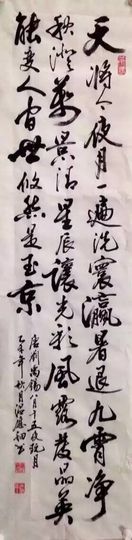 天將今夜月一遍洗寰瀛暑退九霄净
秋澄萬景清星辰讓光彩風露發晶英
能變人间世攸然是玉京
唐劉禹锡八月十五夜玩月
年秋月书